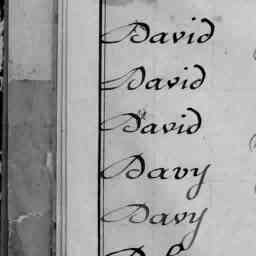 David
David
David
Davy
Davy